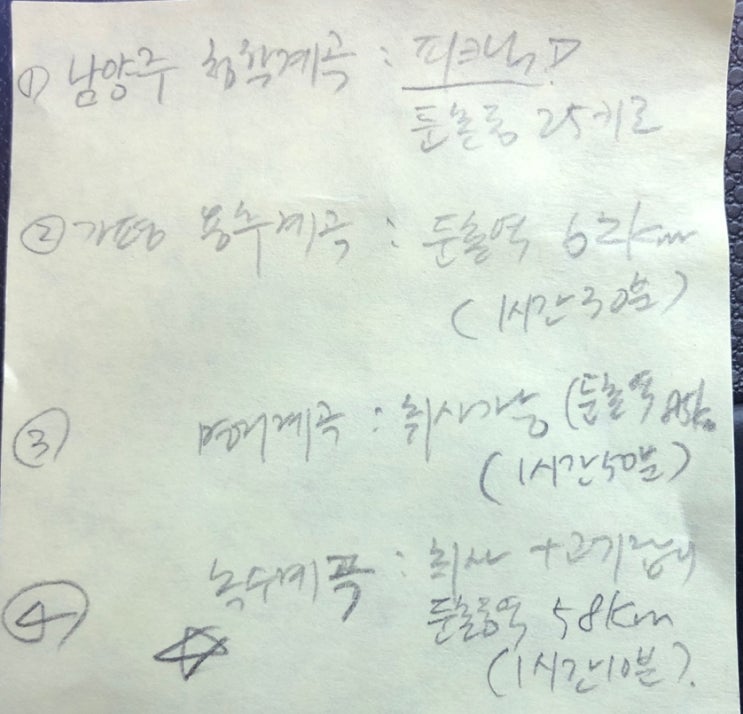 ① 남양주 청학계곡 : 피크닉
둔촌동 25키로
② 가평 용추계곡 : 둔촌역 62km
(1시간30분)
③ 명지계곡 : 취사가능 (둔촌역 85km
(1시간50분)
④ 녹수계곡 : 취사 + 고기잡이
둔촌동역 58km
(1시간10분).